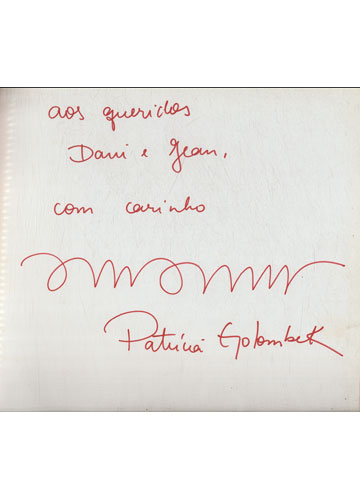 aos queridos
Dani e Jean,
com carinho
Patrícia Golombek